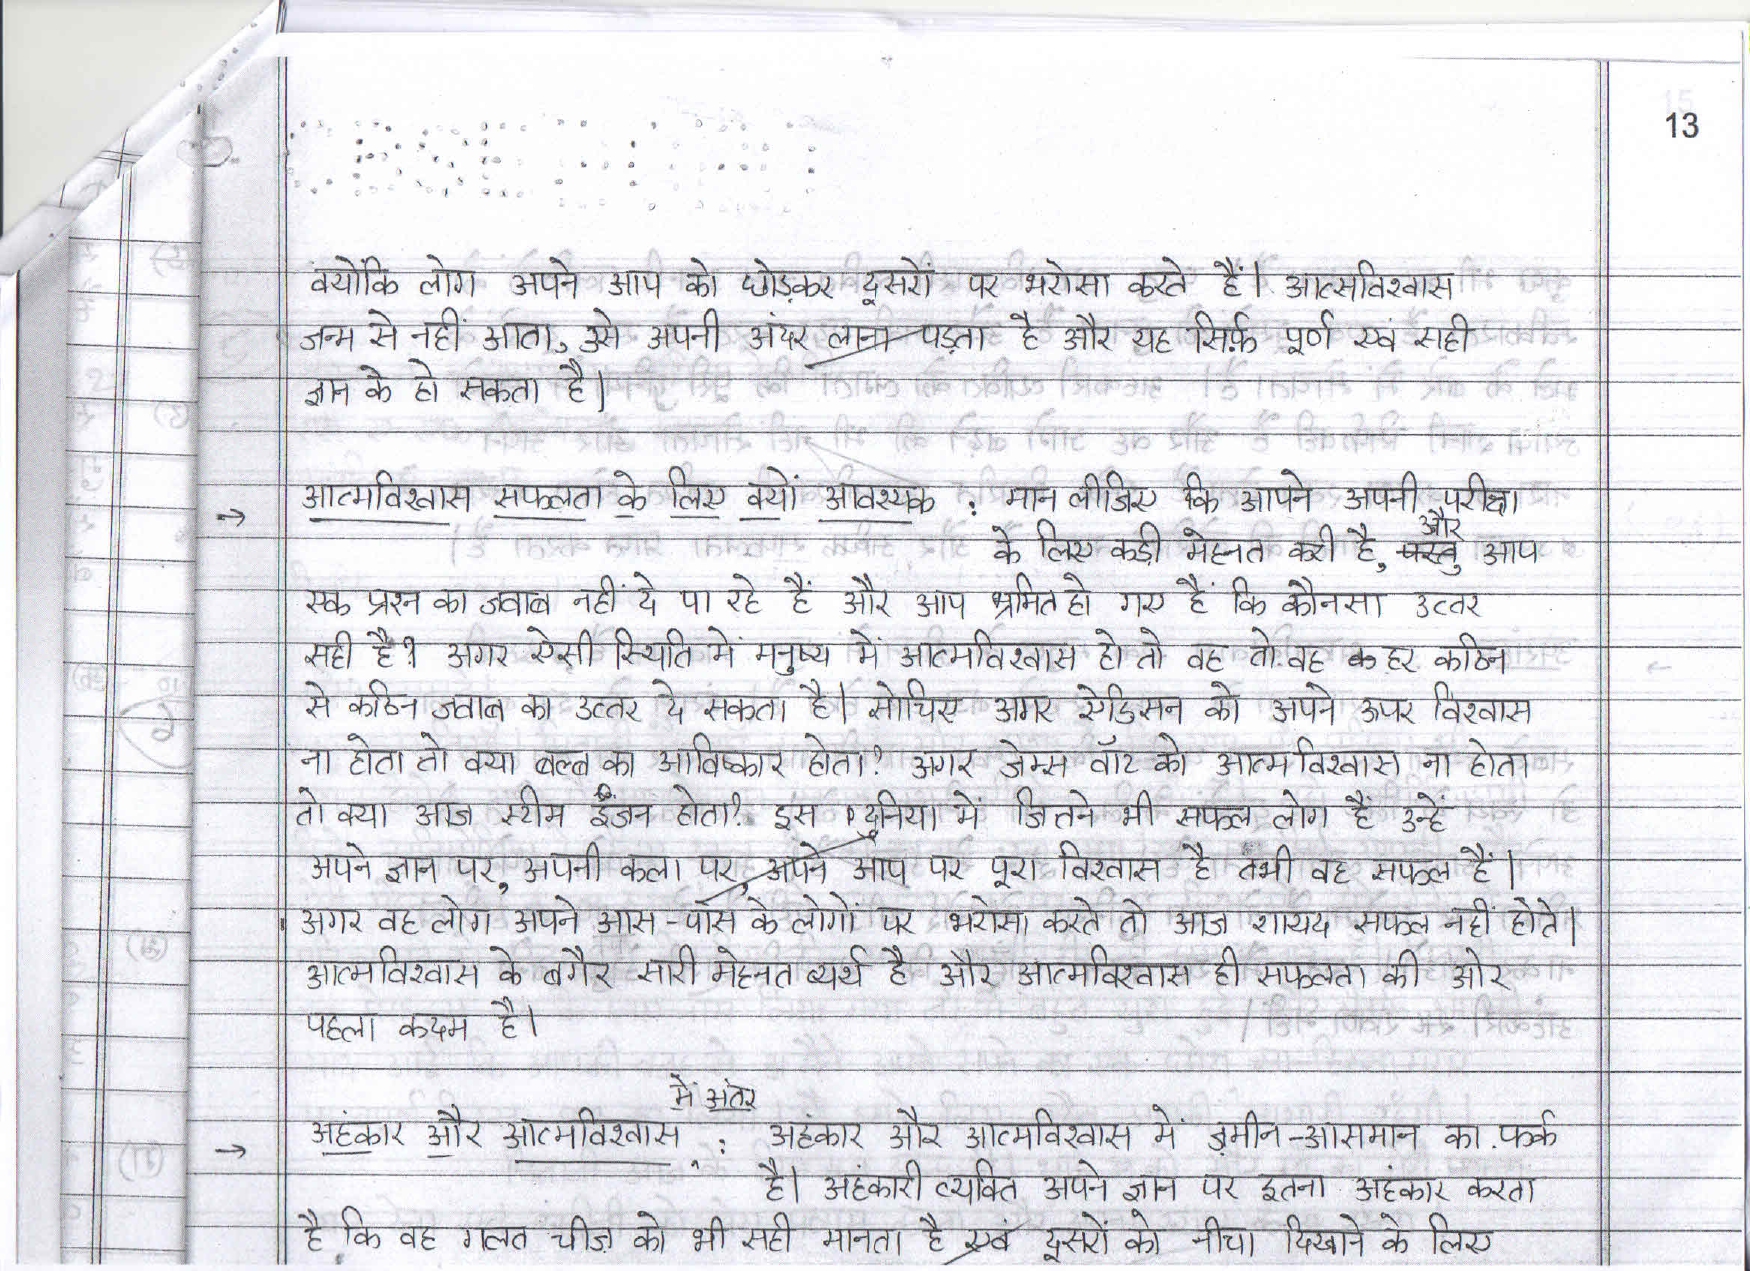 13
क्योंकि लोग अपने आप को छोड़कर दूसरों पर भरोसा करते हैं। आत्मविश्वास
जन्म से नहीं आता, उसे अपनी अंदर लाना पड़ता है और यह सिर्फ़ पूर्ण एवं सही
ज्ञान के हो सकता है।
→ आत्मविश्वास सफलता के लिए क्यों आवश्यक : मान लीजिए कि आपने अपनी परीक्षा
के लिए कड़ी मेहनत करी है, और आप
एक प्रश्न का जवाब नहीं दे पा रहे हैं और आप भ्रमित हो गए हैं कि कौनसा उत्तर
सही है? अगर ऐसी स्थिति में मनुष्य में आत्मविश्वास हो तो वह तो वह क हर कठिन
से कठिन जवाब का उत्तर दे सकता है। सोचिए अगर ऐडिसन को अपने ऊपर विश्वास
ना होता तो क्या बल्ब का आविष्कार होता? अगर जेम्स वॉट को आत्मविश्वास ना होता
तो क्या आज स्टीम इंजन होता? इस दुनिया में जितने भी सफल लोग हैं उन्हें
अपने ज्ञान पर, अपनी कला पर, अपने आप पर पूरा विश्वास है तभी वह सफल हैं।
अगर वह लोग अपने आस-पास के लोगों पर भरोसा करते तो आज शायद सफल नहीं होते।
आत्मविश्वास के बगैर सारी मेहनत व्यर्थ है और आत्मविश्वास ही सफलता की ओर
पहला कदम है।
→ अहंकार और आत्मविश्वास में अंतर : अहंकार और आत्मविश्वास में ज़मीन-आसमान का फर्क
है। अहंकारी व्यक्ति अपने ज्ञान पर इतना अहंकार करता
है कि वह गलत चीज़ को भी सही मानता है एवं दूसरों को नीचा दिखाने के लिए